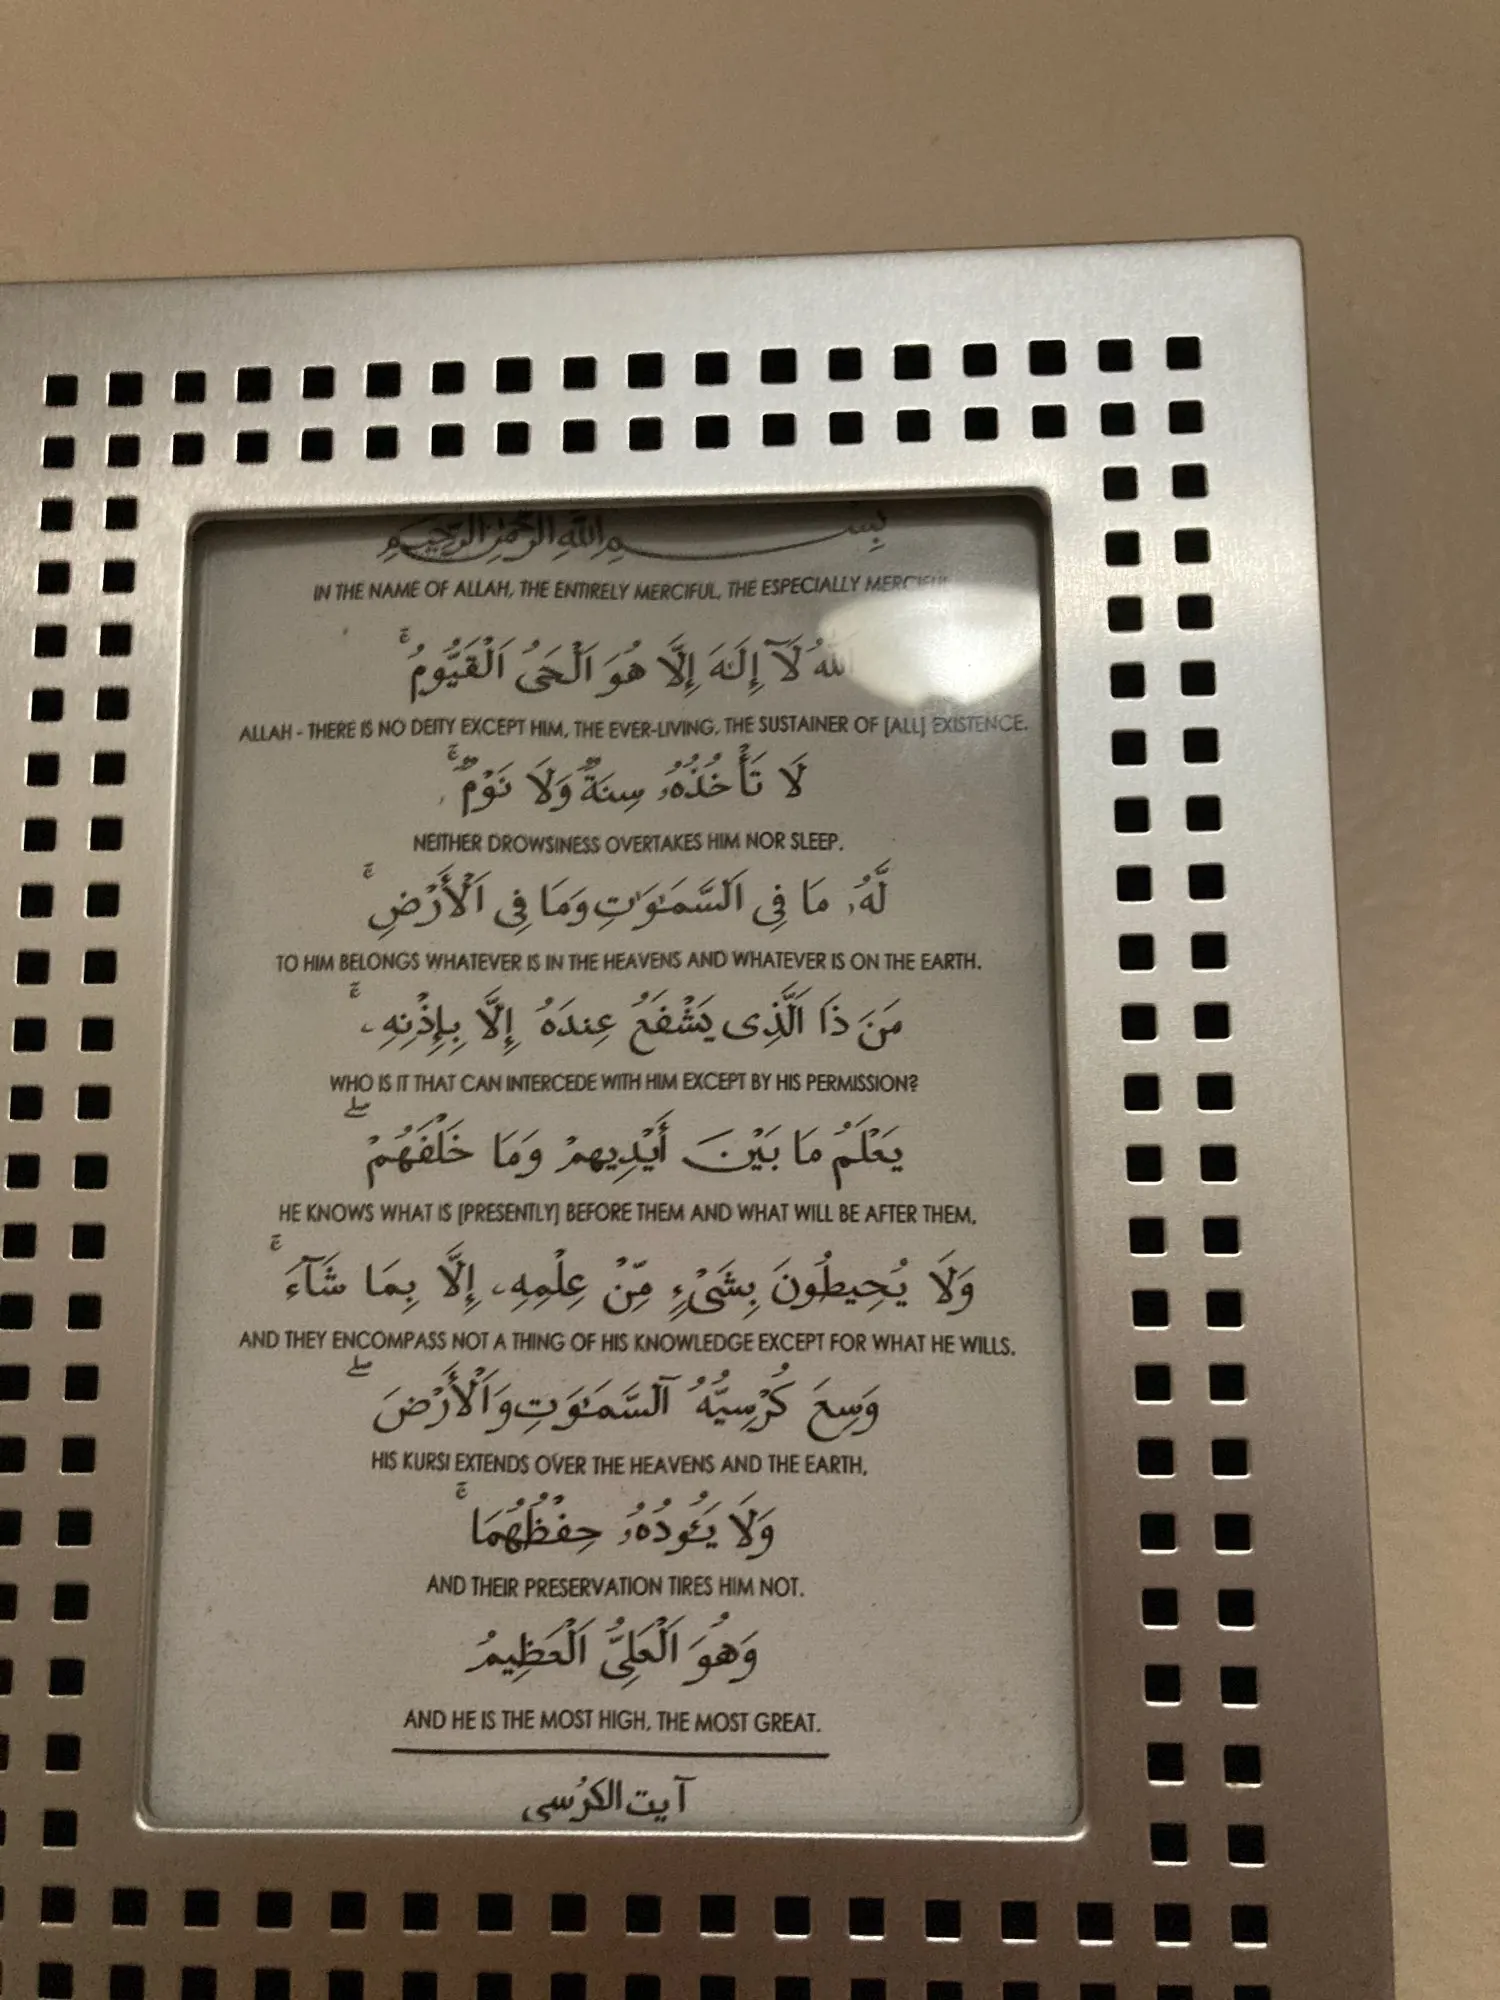 بِسْمِ اللَّهِ الرَّحْمَٰنِ الرَّحِيمِ
IN THE NAME OF ALLAH, THE ENTIRELY MERCIFUL, THE ESPECIALLY MERCIFUL
اللَّهُ لَآ إِلَٰهَ إِلَّا هُوَ ٱلْحَىُّ ٱلْقَيُّومُ ۚ
ALLAH - THERE IS NO DEITY EXCEPT HIM, THE EVER-LIVING, THE SUSTAINER OF [ALL] EXISTENCE.
لَا تَأْخُذُهُۥ سِنَةٌ وَلَا نَوْمٌ ۚ
NEITHER DROWSINESS OVERTAKES HIM NOR SLEEP.
لَّهُۥ مَا فِى ٱلسَّمَٰوَٰتِ وَمَا فِى ٱلْأَرْضِ ۚ
TO HIM BELONGS WHATEVER IS IN THE HEAVENS AND WHATEVER IS ON THE EARTH.
مَن ذَا ٱلَّذِى يَشْفَعُ عِندَهُۥ إِلَّا بِإِذْنِهِۦ ۚ
WHO IS IT THAT CAN INTERCEDE WITH HIM EXCEPT BY HIS PERMISSION?
يَعْلَمُ مَا بَيْنَ أَيْدِيهِمْ وَمَا خَلْفَهُمْ ۖ
HE KNOWS WHAT IS [PRESENTLY] BEFORE THEM AND WHAT WILL BE AFTER THEM,
وَلَا يُحِيطُونَ بِشَىْءٍ مِّنْ عِلْمِهِۦ إِلَّا بِمَا شَآءَ ۚ
AND THEY ENCOMPASS NOT A THING OF HIS KNOWLEDGE EXCEPT FOR WHAT HE WILLS.
وَسِعَ كُرْسِيُّهُ ٱلسَّمَٰوَٰتِ وَٱلْأَرْضَ ۖ
HIS KURSI EXTENDS OVER THE HEAVENS AND THE EARTH,
وَلَا يَـُٔودُهُۥ حِفْظُهُمَا ۚ
AND THEIR PRESERVATION TIRES HIM NOT.
وَهُوَ ٱلْعَلِىُّ ٱلْعَظِيمُ
AND HE IS THE MOST HIGH, THE MOST GREAT.
آيت الكرُسى